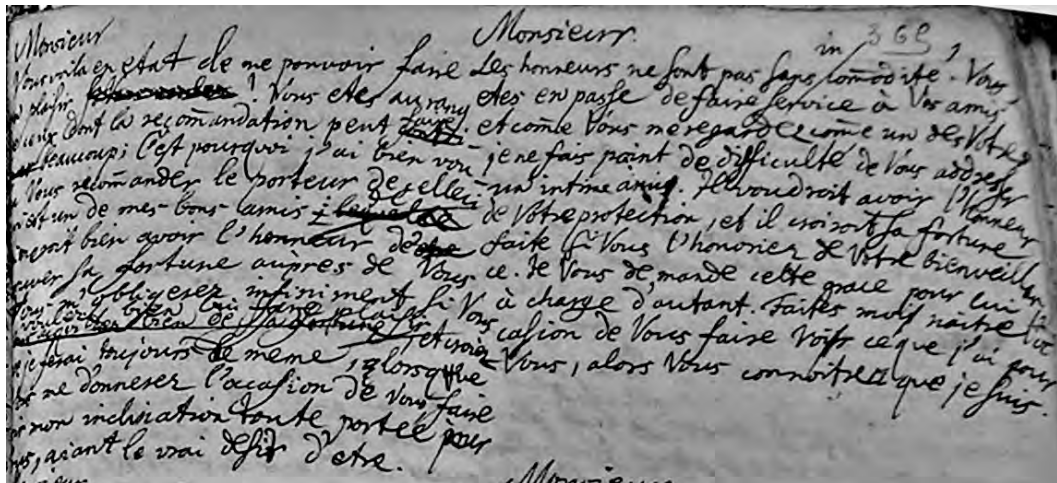 Monsieur
Vous voila en etat de me pouvoir faire
plaisir! Vous etes au rang
dont la recom̄andation peut faire
beaucoup; C'est pourquoi j'ai bien vou
Vous recom̄ander le porteur de celle ci
un de mes bons amis;
bien avoir l'honneur d'etre
sa fortune aupres de Vous
m'obligerez infiniment si Vous
voulez bien lui faire plaisir
de sa fortune, et croiez
je serai toujours de meme, lorsque
me donnerez l'occasion de Vous faire
mon inclination toute portée pour
aiant le vrai desir d'etre.
Monsieur.
in 369
Les honneurs ne sont pas sans com̄odité. Vous
etes en passe de faire service à Vos amis
et com̄e Vous me regardez com̄e un des Votres
je ne fais point de difficulté de Vous addresser
un intime amy. Il voudroit avoir l'honneur
de Votre protection, et il croiroit sa fortune
faite si Vous l'honoriez de Votre bienveillan
ce. Je Vous demande cette grace pour lui
à charge d'autant. Faites moy naitre l'oc
casion de Vous faire voir ce que j'ai pour
Vous, alors Vous connoitrez que je suis.
Monsieur